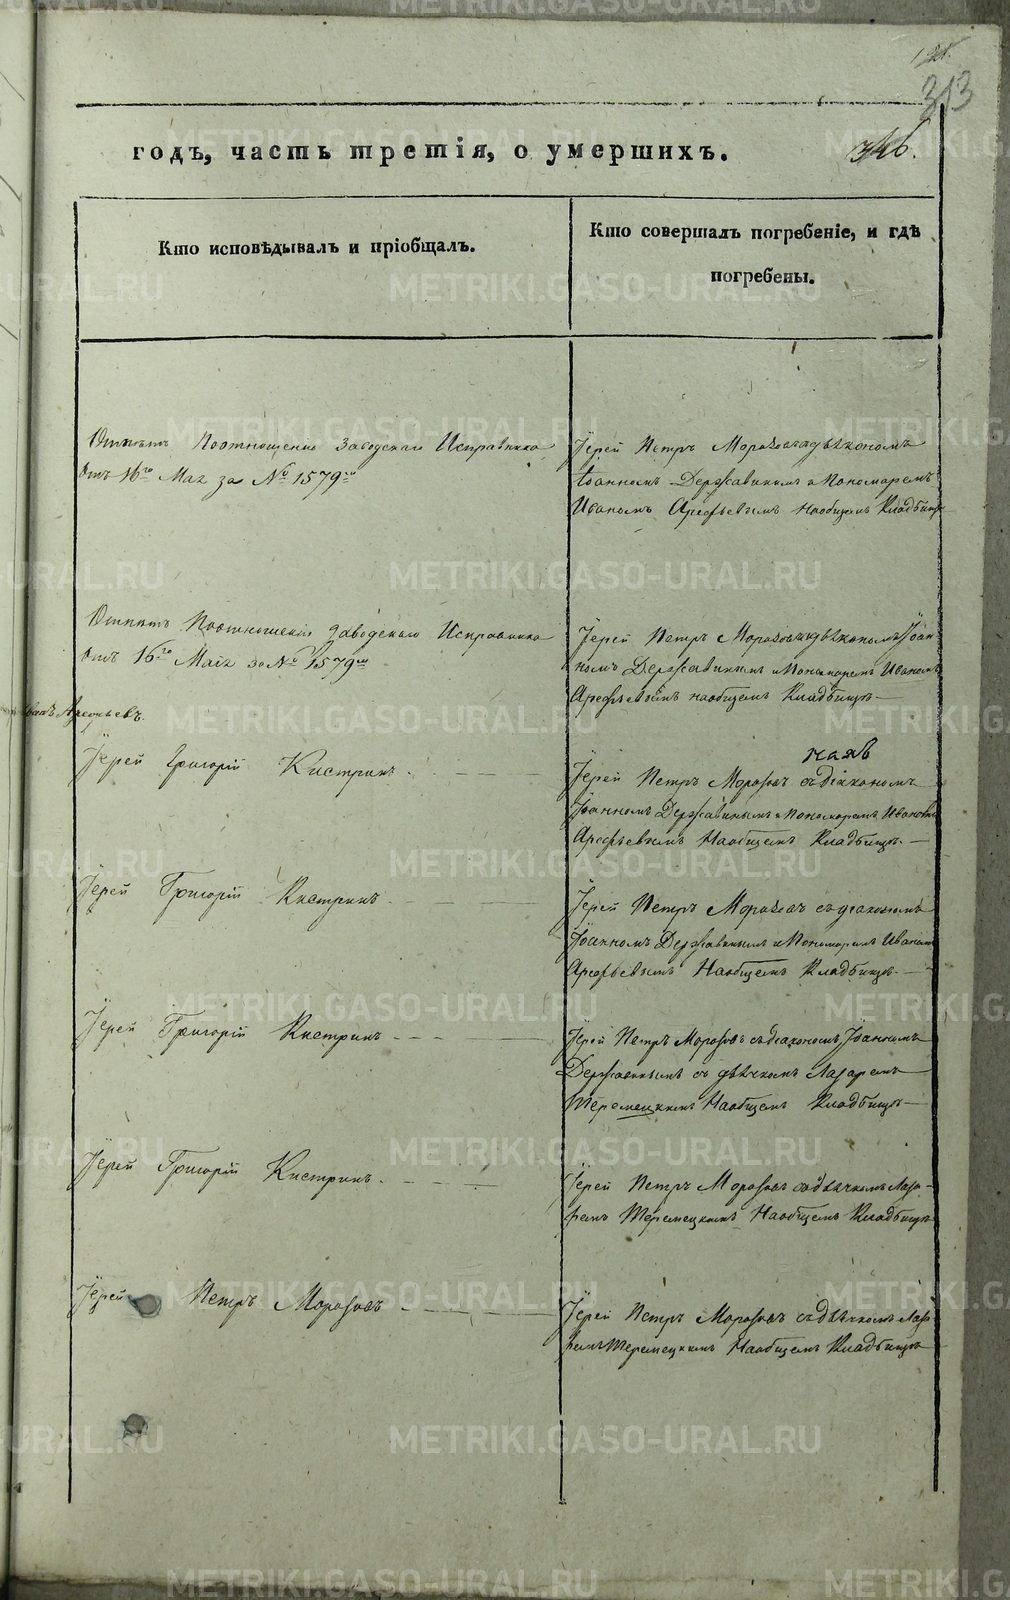 313
годъ, часть третія, о умершихъ.
Кто исповѣдывалъ и пріобщалъ.
Кто совершалъ погребеніе, и гдѣ
погребены.
Отпѣтъ Поотношенію Заводскаго Исправника
Отъ 16го Маія за № 1579мъ
Іерей Петръ Морозовъ съ діакономъ
Іоанномъ Державинымъ и Пономаремъ
Иваномъ Арефьевымъ Наобщемъ Кладбищѣ
Отпѣтъ Поотношенію Заводскаго Исправника
Отъ 16го Маія за № 1579мъ
Іерей Петръ Морозовъ съ діакономъ Іоан-
номъ Державинымъ и Пономаремъ Иваномъ
Арефьевымъ наобщемъ Кладбищѣ
Иванъ Арефьевъ.
Іерей Григорій Кистринъ.
Іерей Петръ Морозовъ съ діакономъ
Іоанномъ Державинымъ и Пономаремъ Иваномъ
Арефьевымъ Наобщемъ Кладбищѣ.
Іерей Григорій Кистринъ
Іерей Петръ Морозовъ съ діакономъ
Іоанномъ Державинымъ и Пономаремъ Иваномъ
Арефьевымъ Наобщемъ Кладбищѣ.
Іерей Григорій Кистринъ
Іерей Петръ Морозовъ съ діакономъ Іоанномъ
Державинымъ съ дьячкомъ Лазаремъ
Теремецкимъ Наобщемъ Кладбищѣ
Іерей Григорій Кистринъ.
Іерей Петръ Морозовъ съ дьячкомъ Лаза-
ремъ Теремецкимъ Наобщемъ Кладбищѣ
Іерей Петръ Морозовъ
Іерей Петръ Морозовъ съ дьячкомъ Лаза-
ремъ Теремецкимъ Наобщемъ Кладбищѣ
METRIKI.GASO-URAL.RU